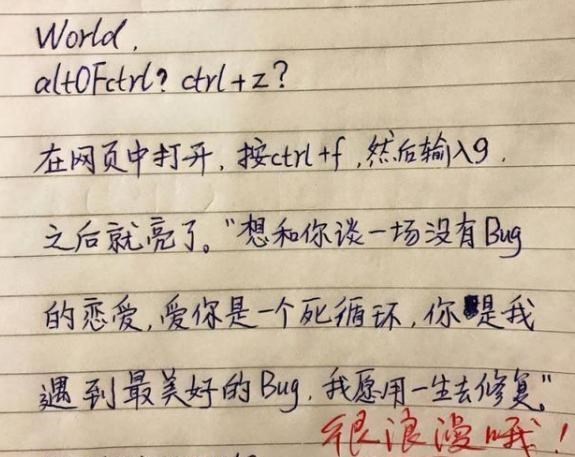 World,
alt0Fctrl? ctrl+z?
在网页中打开,按ctrl+f,然后输入9,
之后就亮了。"想和你谈一场没有Bug
的恋爱,爱你是一个死循环,你是我
遇到最美好的Bug,我愿用一生去修复。"
很浪漫哦!